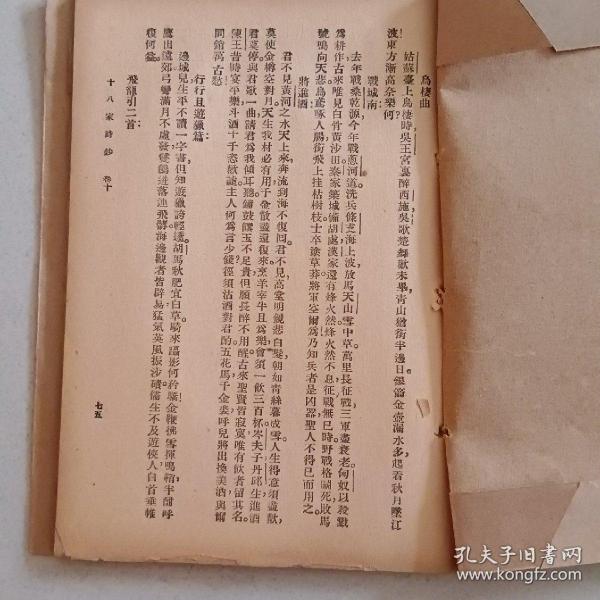 烏棲曲
姑蘇臺上烏棲時,吳王宮裏醉西施,吳歌楚舞歡未畢,青山猶銜半邊日。銀箭金壺漏水多,起看秋月墜江
波,東方漸高奈樂何!
戰城南:
去年戰桑乾源,今年戰葱河道。洗兵條支海上波,放馬天山雪中草。萬里長征戰,三軍盡衰老。匈奴以殺戮
爲耕作,古來唯見白骨黃沙田。秦家築城備胡處,漢家還有烽火然。烽火然不息,征戰無已時。野戰格鬬死,敗馬
號鳴向天悲。烏鳶啄人腸,銜飛上挂枯樹枝。士卒塗草莽,將軍空爾爲。乃知兵者是凶器,聖人不得已而用之。
將進酒:
君不見黃河之水天上來,奔流到海不復回。君不見高堂明鏡悲白髮,朝如青絲暮成雪。人生得意須盡歡,
莫使金樽空對月。天生我材必有用,千金散盡還復來。烹羊宰牛且爲樂,會須一飲三百杯。岑夫子,丹邱生,進酒
君莫停。與君歌一曲,請君爲我傾耳聽。鐘鼓饌玉不足貴,但願長醉不用醒。古來聖賢皆寂寞,唯有飲者留其名。
陳王昔時宴平樂,斗酒十千恣歡謔。主人何爲言少錢,徑須沽酒對君酌。五花馬,千金裘,呼兒將出換美酒,與爾
同銷萬古愁。
行行且遊獵篇:
邊城兒,生平不讀一字書,但知遊獵誇輕趫。胡馬秋肥宜白草,騎來躡影何矜驕。金鞭拂雪揮鳴鞘,半酣呼
鷹出遠郊。弓彎滿月不虛發,雙鶬迸落連飛髇。海邊觀者皆辟易,猛氣英風振沙磧。儒生不及遊俠人,白首垂帷
復何益。
飛龍引二首:
十八家詩鈔 卷十
七五
孔夫子旧书网
www.kongfz.com